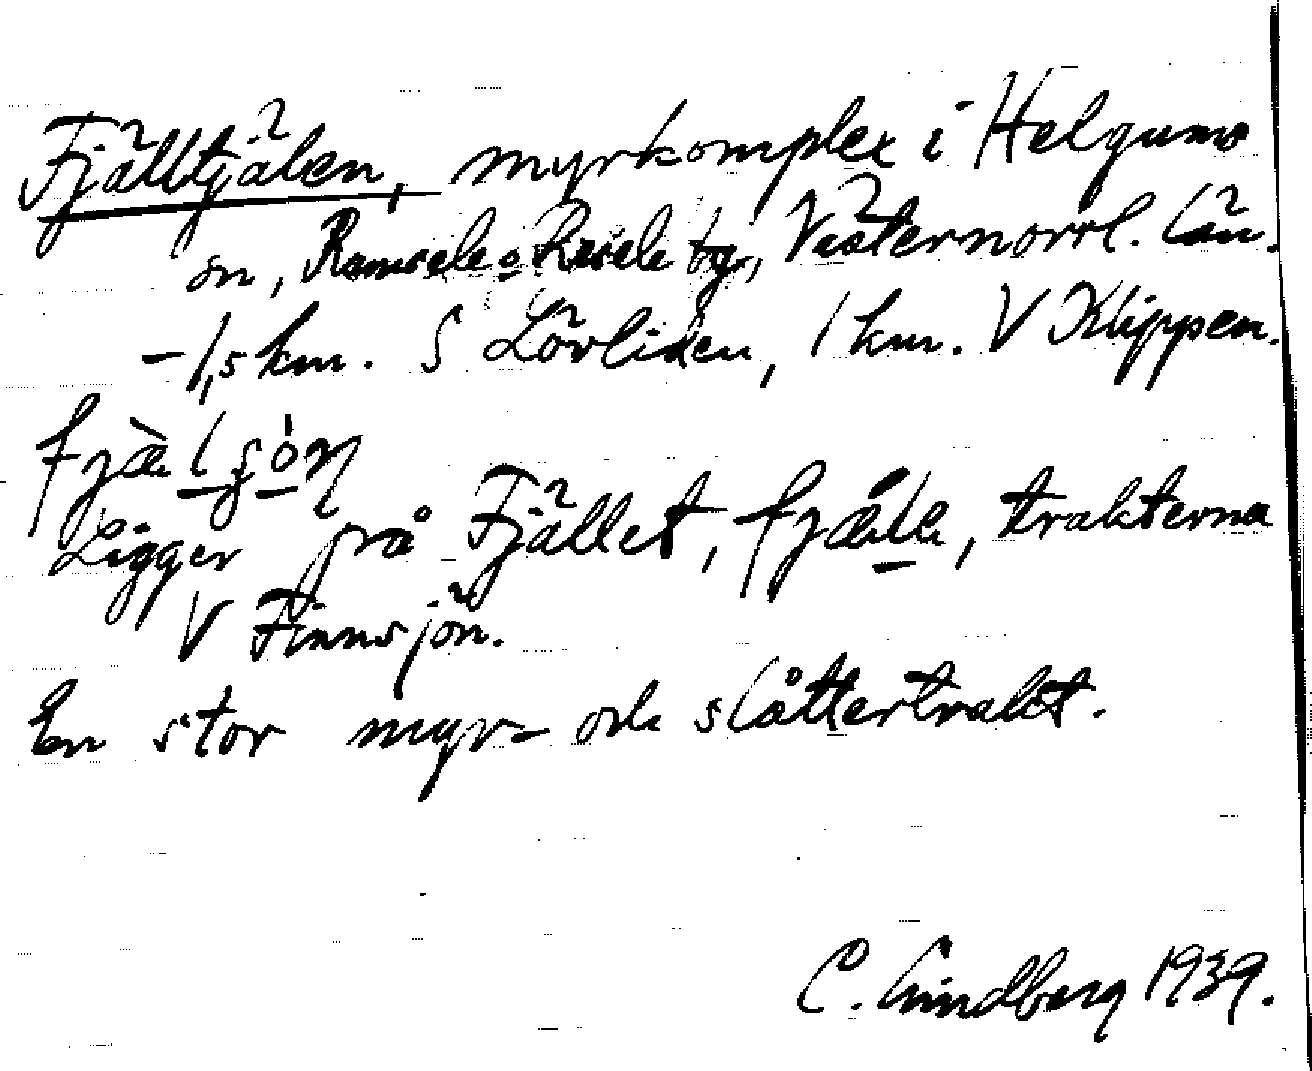 Fjälltjälen, myrkomplex i Helgums
sn, Ramsele o Resele tg, Västernorrl. län.
- 1,5 km. S Lövliden, 1 km. V Klippen.
Ligger på Fjället, fjælle, trakterna
V Finnsjön.
En stor myr- och slåttertrakt.
C. Lindberg 1939.